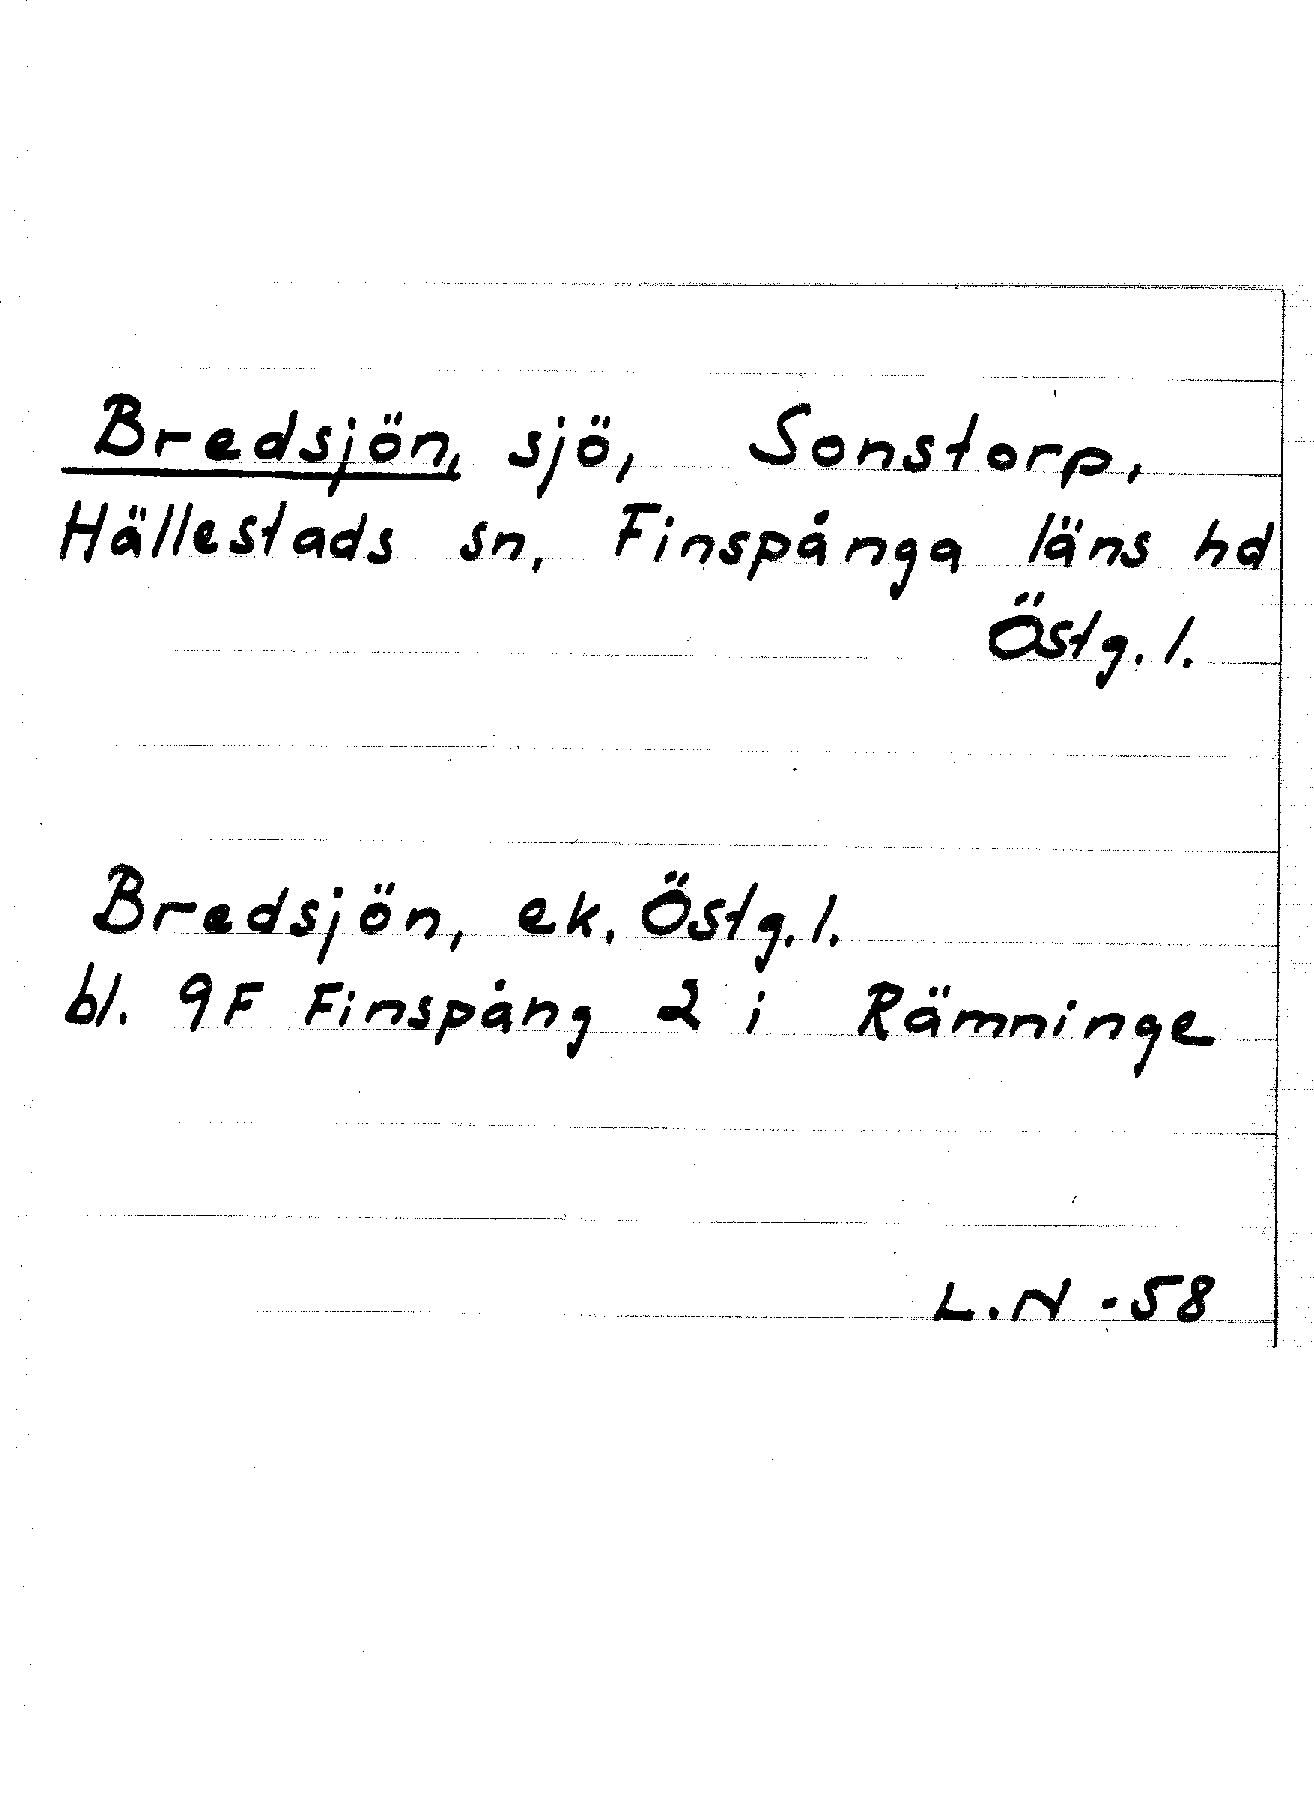 Bredsjön, sjö, Sonstorp,
Hällestads sn, Finspånga läns hd
Östg. l.
Bredsjön, ek. Östg. l.
bl. 9F Finspång 2 i Rämninge
L.N -58